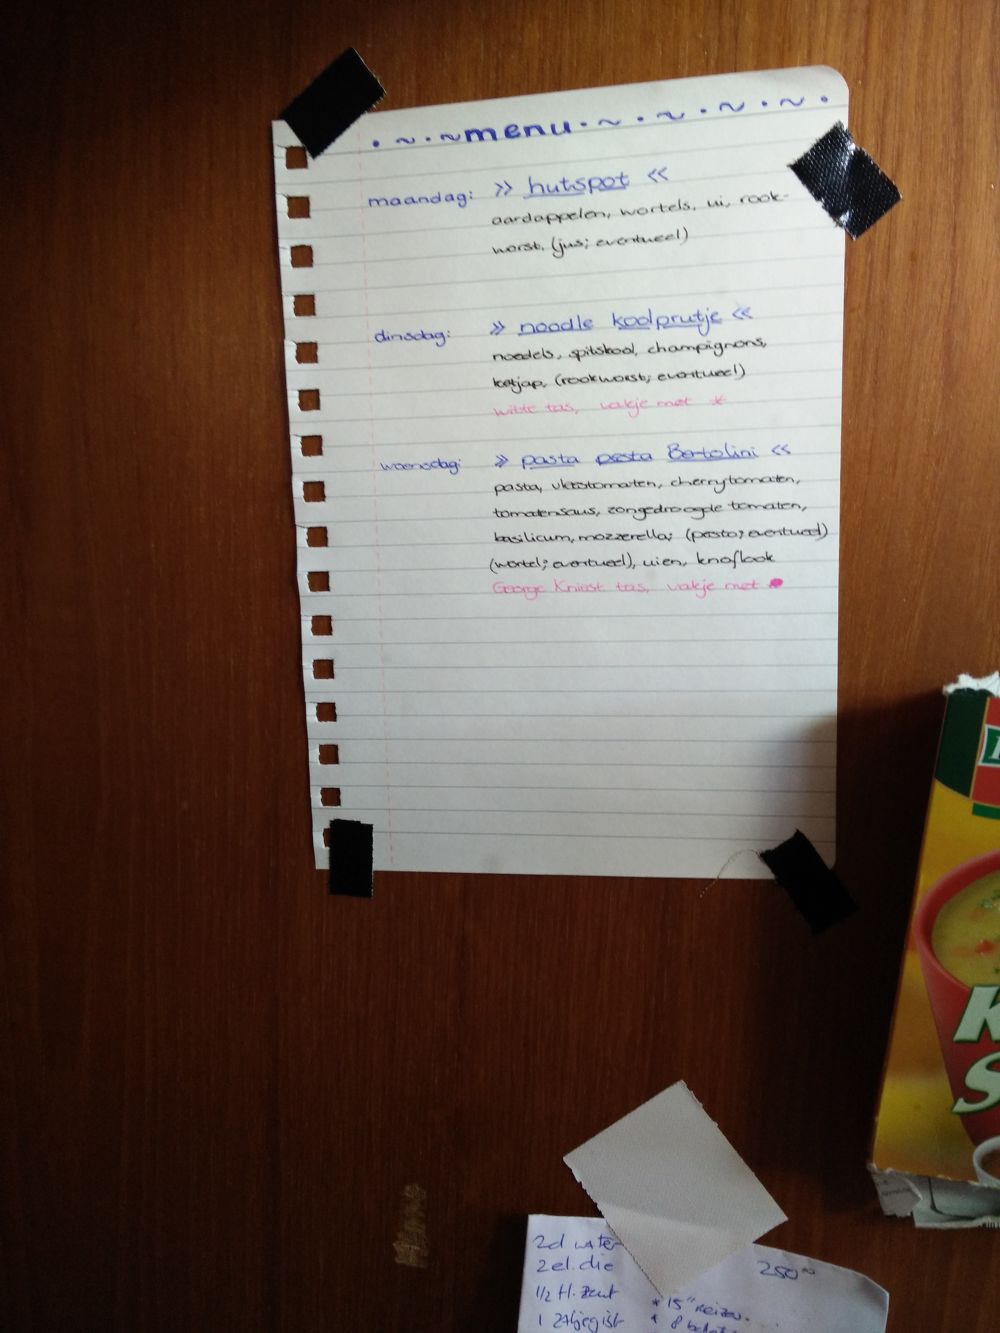 • ~ • ~ menu • ~ • ~ • ~ • ~ •
maandag: >> hutspot <<
aardappelen, wortels, ui, rook-
worst, (jus; eventueel)
dinsdag: >> noodle koolprutje <<
noedels, spitskool, champignons,
ketjap, (rookworst; eventueel)
witte tas, vakje met *
woensdag: >> pasta pesta Bertolini <<
pasta, vleestomaten, cherrytomaten,
tomatensaus, zongedroogde tomaten,
basilicum, mozzerella; (pesto; eventueel)
(wortel; eventueel), uien, knoflook
George Kniest tas, vakje met •
K
S
2d water
2el. olie
250
1/2 tl. zout
* 15"
1 zakje gist
* 8